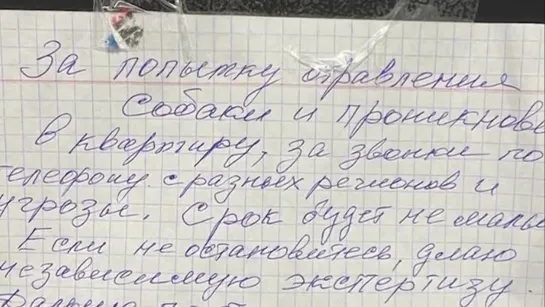 За попытку отравления
собаки и проникнове
в квартиру, за звонки по
телефону с разных регионов и
угрозы. Срок будет не малы
Если не остановитесь, делаю
независимую экспертизу.